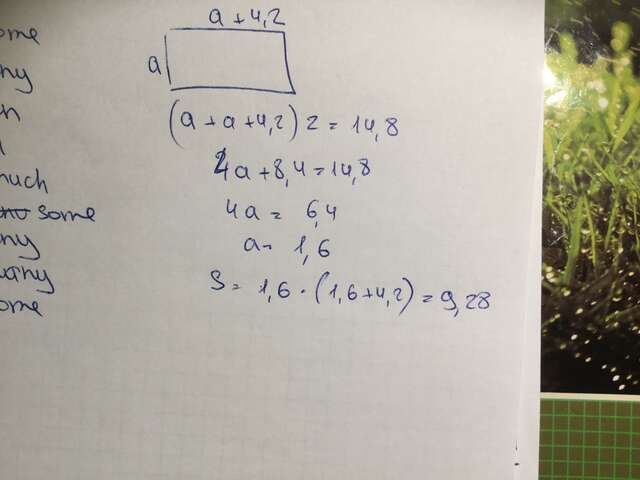 a + 4,2
a
(a + a + 4,2) 2 = 14,8
4a + 8,4 = 14,8
4a = 6,4
a = 1,6
S = 1,6 · (1,6 + 4,2) = 9,28
ome
ny
uch
some
ny
ome